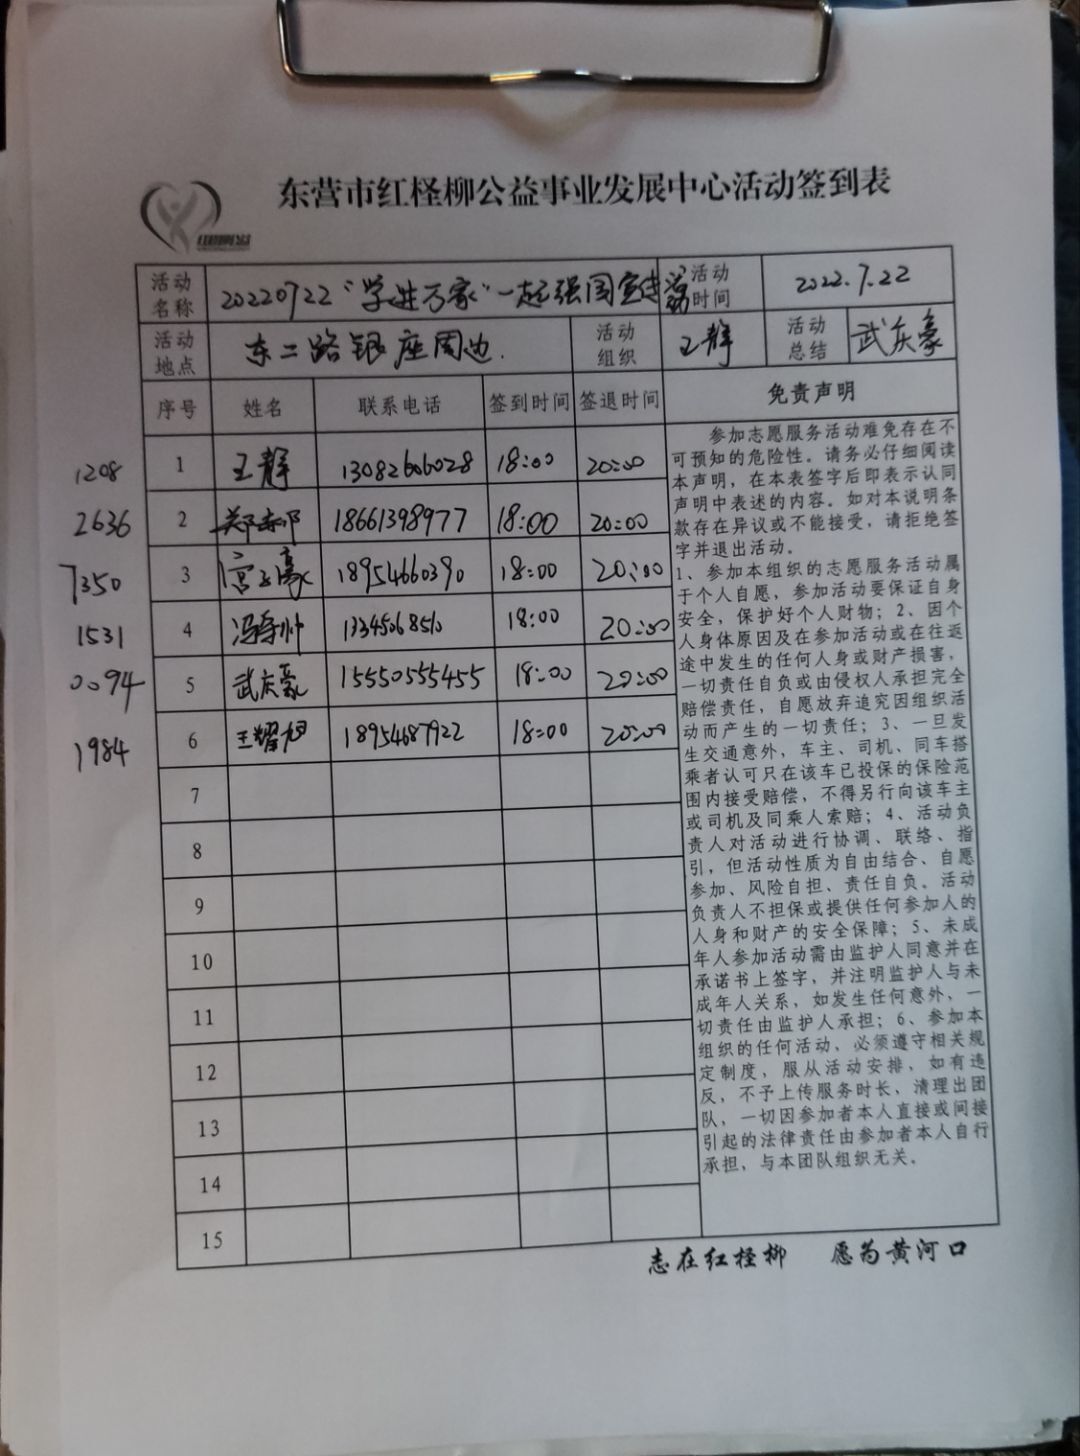 东营市红柽柳公益事业发展中心活动签到表
活动名称 20220722"学进万家"一起强国宣讲 活动时间 2022.7.22
活动地点 东二路银座周边. 活动组织 王静 活动总结 武庆豪
序号 姓名 联系电话 签到时间 签退时间 免责声明
1208 1 王静 13082606028 18:00 20:00
2636 2 郑 18661398977 18:00 20:00
7350 3 豪 18954660390 18:00 20:00
1531 4 冯 帅 13345068510 18:00 20:00
0094 5 武庆豪 15550555455 18:00 20:00
1984 6 王耀旭 18954687922 18:00 20:00
7
8
9
10
11
12
13
14
15
参加志愿服务活动难免存在不
可预知的危险性。请务必仔细阅读
本声明，在本表签字后即表示认同
声明中表述的内容。如对本说明条
款存在异议或不能接受，请拒绝签
字并退出活动。
1、参加本组织的志愿服务活动属
于个人自愿，参加活动要保证自身
安全，保护好个人财物；2、因个
人身体原因及在参加活动或在往返
途中发生的任何人身或财产损害，
一切责任自负或由侵权人承担完全
赔偿责任，自愿放弃追究因组织活
动而产生的一切责任；3、一旦发
生交通意外，车主、司机、同车搭
乘者认可只在该车已投保的保险范
围内接受赔偿，不得另行向该车主
或司机及同乘人索赔；4、活动负
责人对活动进行协调、联络、指
引，但活动性质为自由结合、自愿
参加、风险自担、责任自负。活动
负责人不担保或提供任何参加人的
人身和财产的安全保障；5、未成
年人参加活动需由监护人同意并在
承诺书上签字，并注明监护人与未
成年人关系，如发生任何意外，一
切责任由监护人承担；6、参加本
组织的任何活动、必须遵守相关规
定制度，服从活动安排，如有违
反，不予上传服务时长，清理出团
队，一切因参加者本人直接或间接
引起的法律责任由参加者本人自行
承担，与本团队组织无关。
志在红柽柳 愿为黄河口